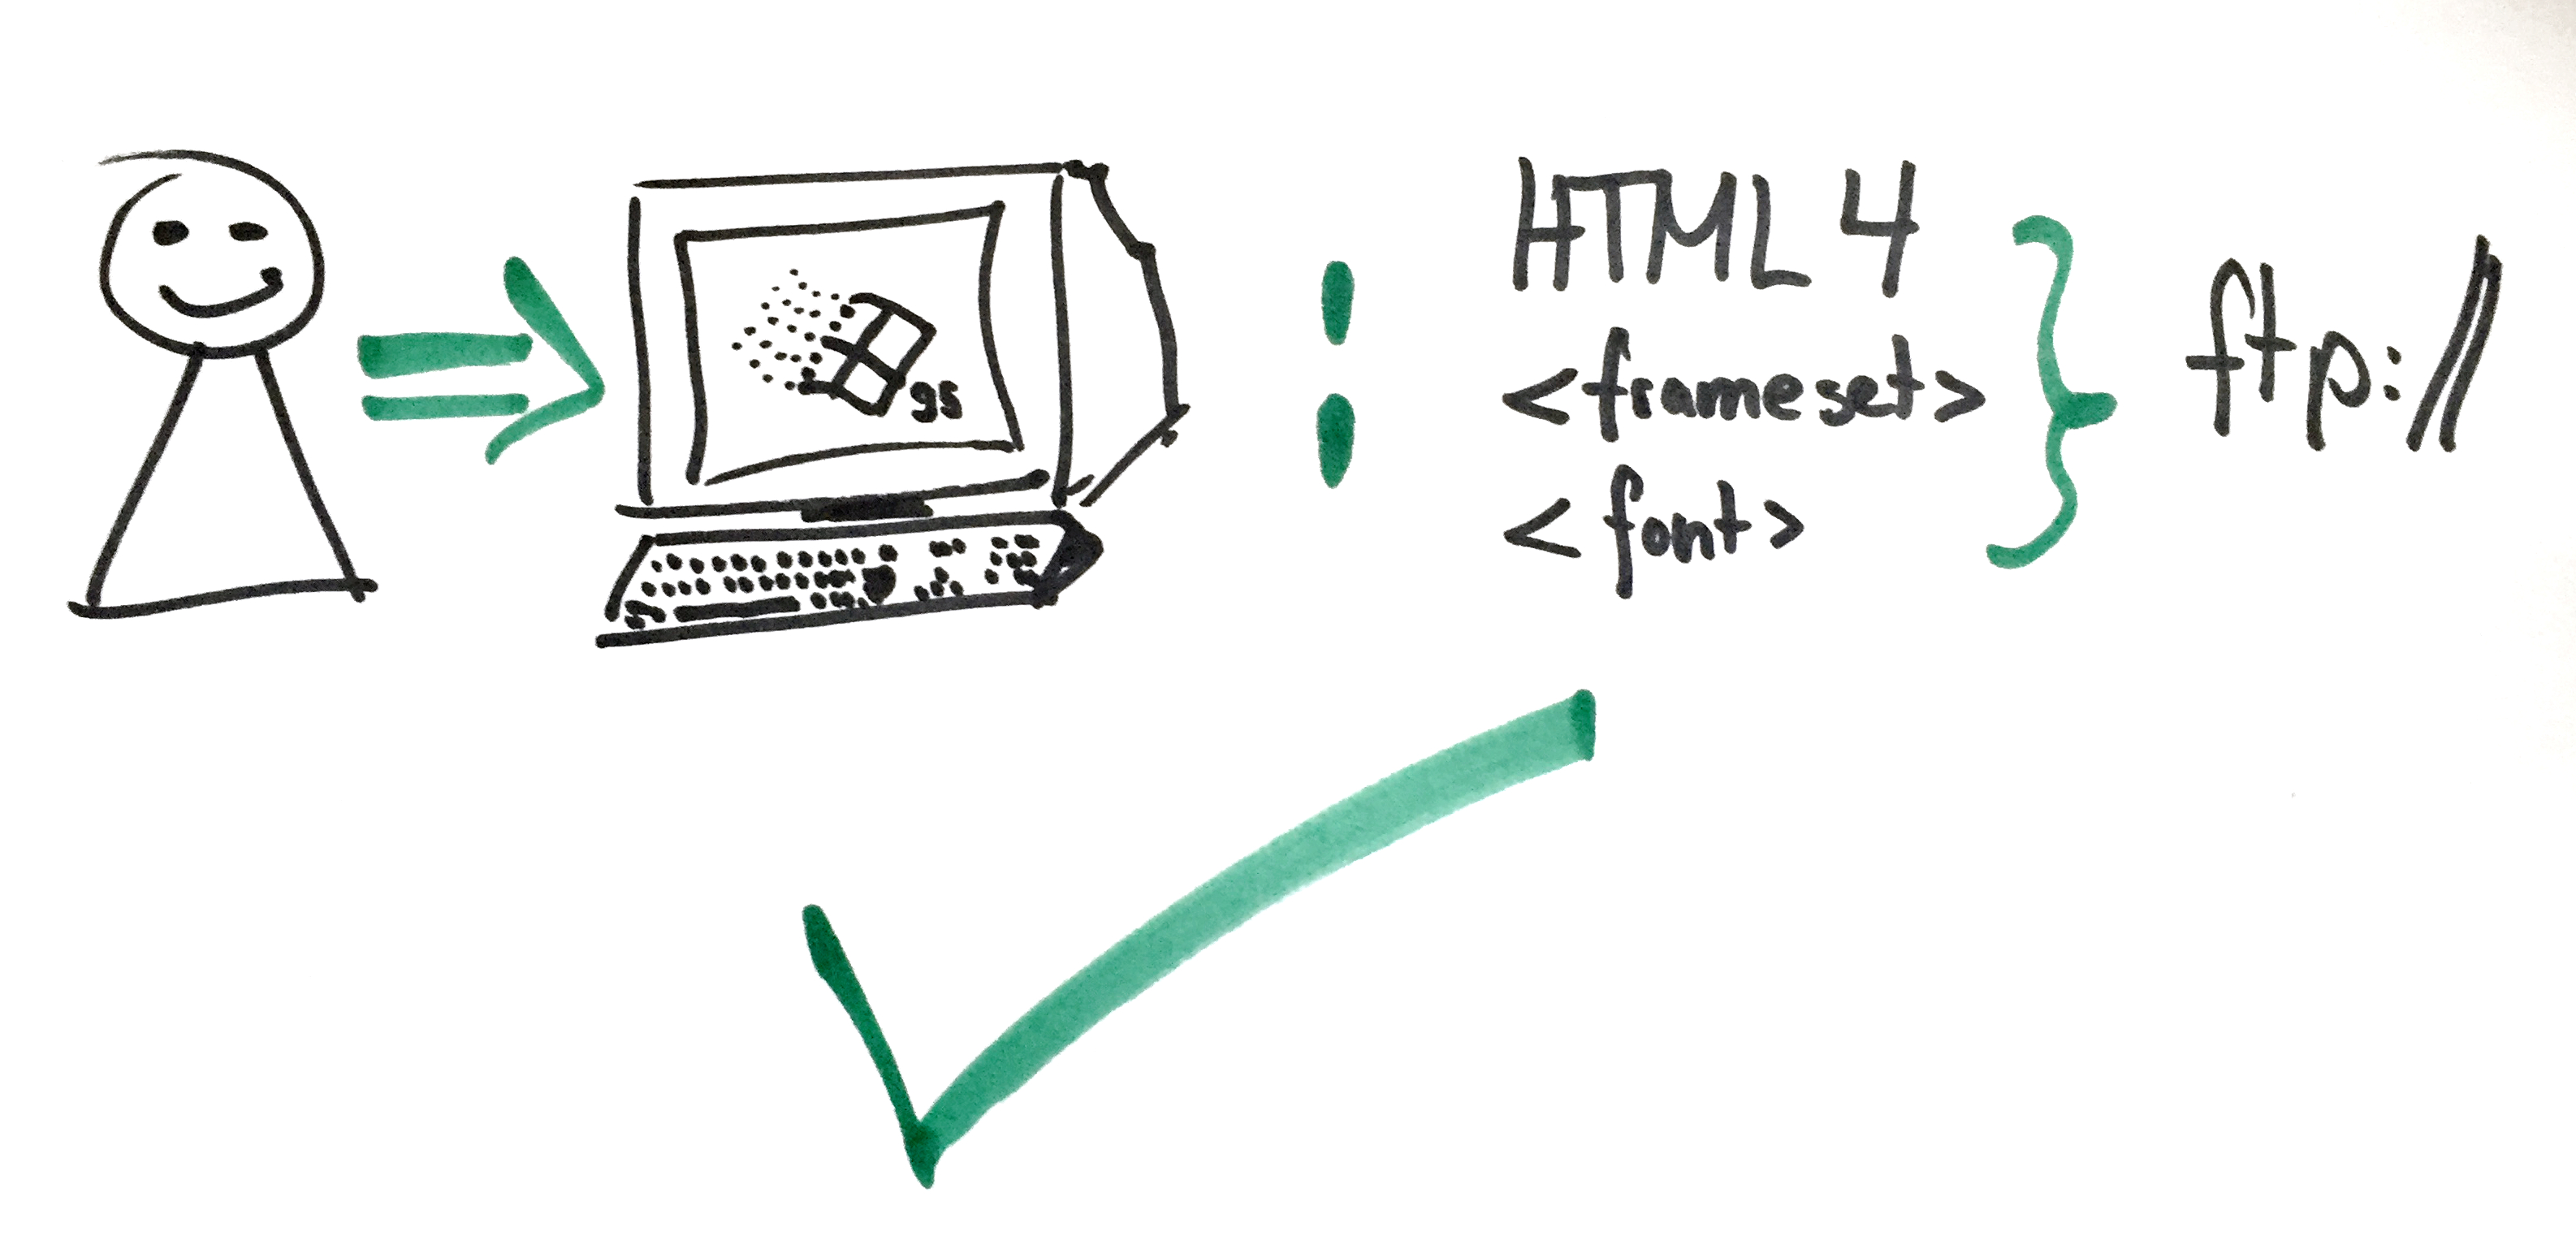 95
HTML 4
<frameset>
<font>
ftp://